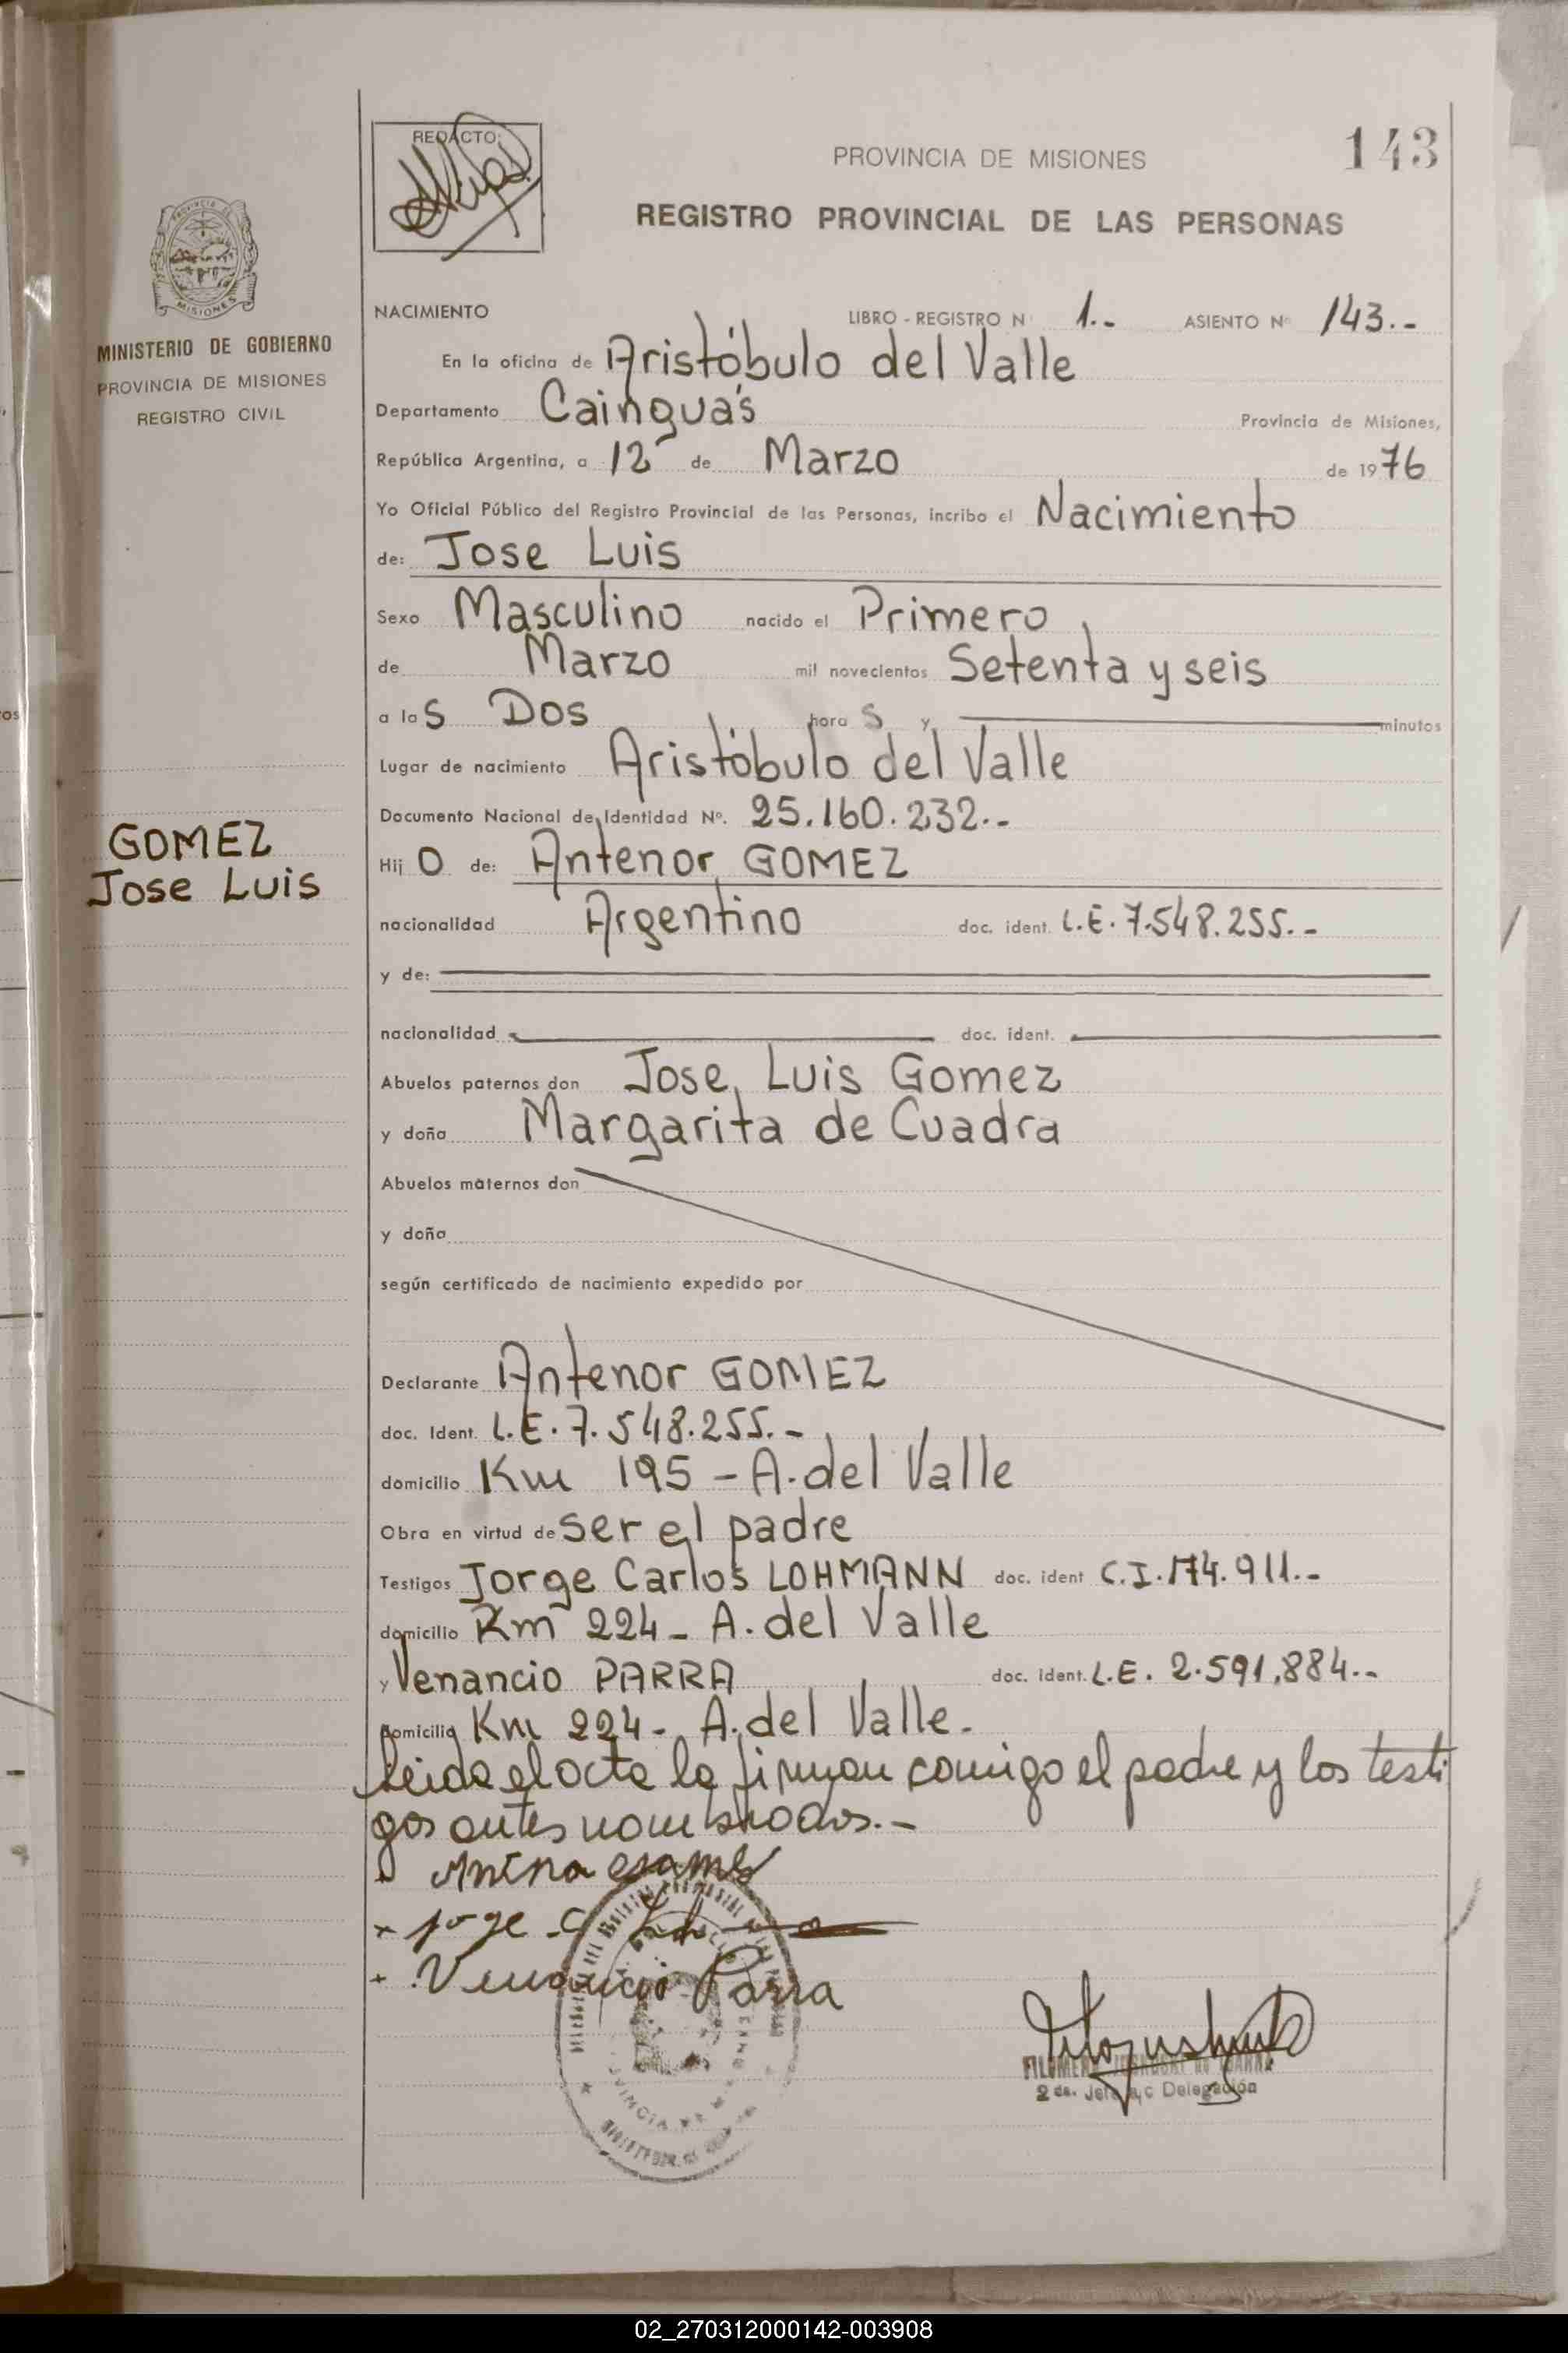 REDACTO:
PROVINCIA DE MISIONES
143
REGISTRO PROVINCIAL DE LAS PERSONAS
PROVINCIA DE
MISIONES
MINISTERIO DE GOBIERNO
PROVINCIA DE MISIONES
REGISTRO CIVIL
NACIMIENTO LIBRO - REGISTRO N° 1.- ASIENTO N° 143.-
En la oficina de Aristóbulo del Valle
Departamento Cainguás Provincia de Misiones,
República Argentina, a 12 de Marzo de 1976
Yo Oficial Público del Registro Provincial de las Personas, incribo el Nacimiento
de: Jose Luis
Sexo Masculino nacido el Primero
de Marzo mil novecientos Setenta y seis
a las Dos horas y minutos
Lugar de nacimiento Aristóbulo del Valle
Documento Nacional de Identidad Nº. 25.160.232.-
GOMEZ
Jose Luis
Hijo de: Antenor GOMEZ
nacionalidad Argentino doc. ident. L.E. 7.548.255.-
y de:
nacionalidad doc. ident.
Abuelos paternos don Jose Luis Gomez
y doña Margarita de Cuadra
Abuelos maternos don
y doña
según certificado de nacimiento expedido por
Declarante Antenor GOMEZ
doc. Ident. L.E. 7.548.255.-
domicilio Km 195 - A. del Valle
Obra en virtud de ser el padre
Testigos Jorge Carlos LOHMANN doc. ident C.I. 174.911.-
domicilio Km 224 - A. del Valle
y Venancio PARRA doc. ident. L.E. 2.591.884.-
domicilio Km 224 - A. del Valle.
Leida el acta la firman comigo el padre y los testi
gos antes nombrados.-
Jorge C
Venancio Parra
FILOMENA
2 da. Jefe a/c Delegación
02_270312000142-003908